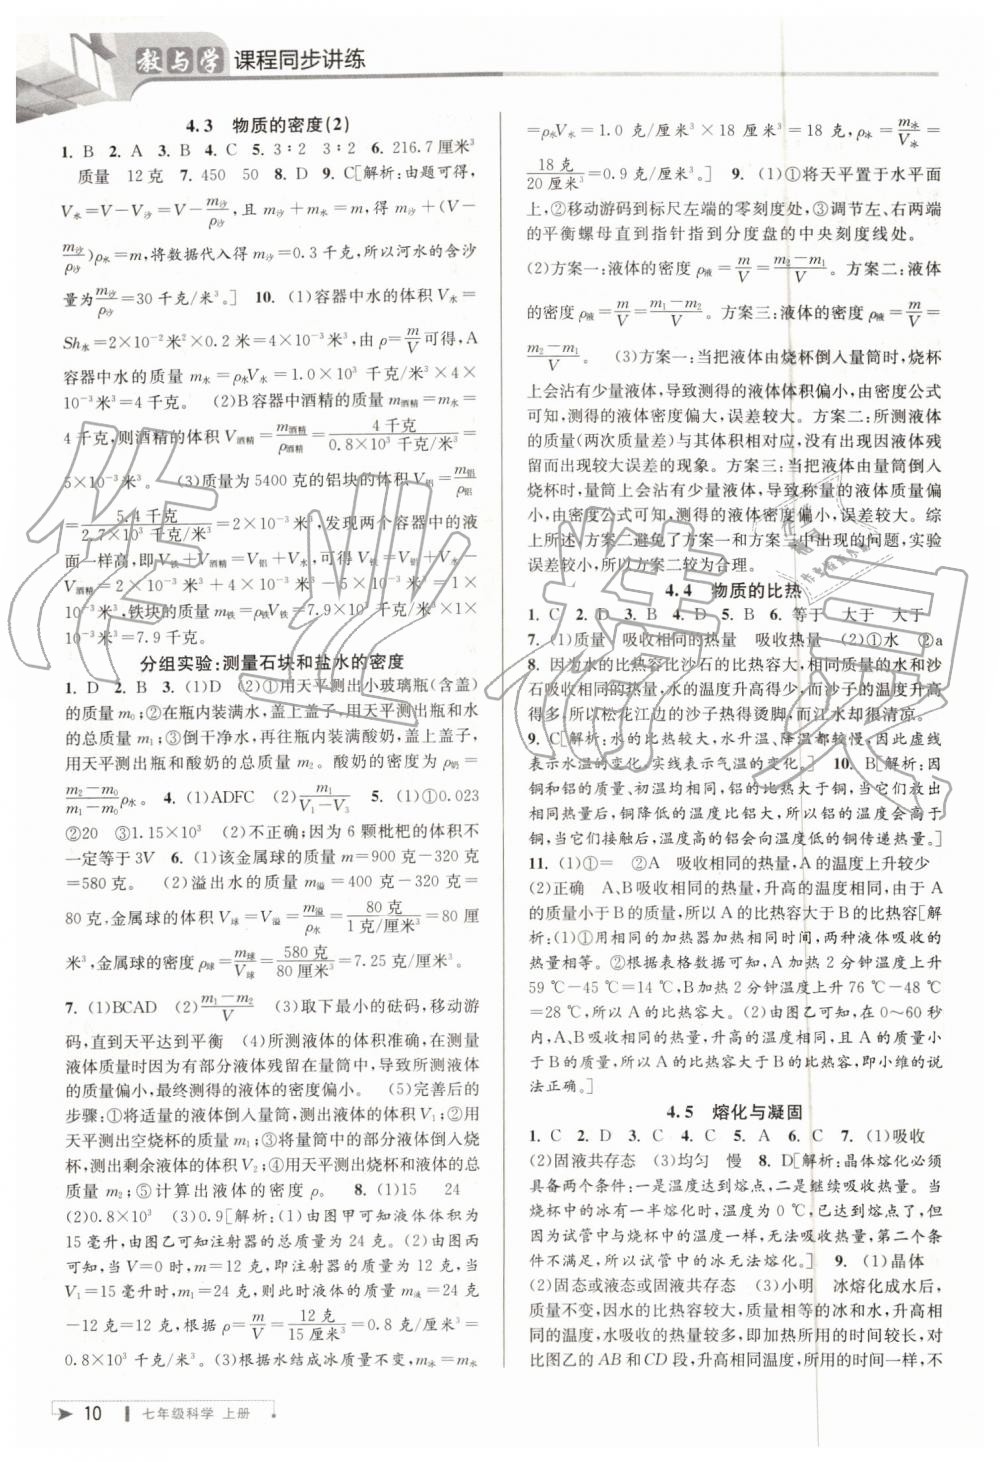 教与学 课程同步讲练
4.3 物质的密度(2)
1. B 2. A 3. B 4. C 5. 3∶2 3∶2 6. 216.7厘米³
质量 12克 7. 450 50 8. D 9. C[解析:由题可得,
V水=V-V沙=V-m沙/ρ沙,且 m沙+m水=m,得 m沙+(V-
m沙/ρ沙)ρ水=m,将数据代入得 m沙=0.3千克,所以河水的含沙
量为m沙/ρ沙=30千克/米³。] 10. (1)容器中水的体积V水=
Sh水=2×10⁻²米²×0.2米=4×10⁻³米³,由ρ=m/V可得,A
容器中水的质量 m水=ρ水V水=1.0×10³千克/米³×4×
10⁻³米³=4千克。 (2)B容器中酒精的质量m酒精=m水=
4千克,则酒精的体积V酒精=m酒精/ρ酒精=4千克/0.8×10³千克/米³=
5×10⁻³米³。 (3)质量为5400克的铝块的体积V铝=m铝/ρ铝
=5.4千克/2.7×10³千克/米³=2×10⁻³米³,发现两个容器中的液
面一样高,即V铁+V酒精=V铝+V水,可得V铁=V铝+V水
-V酒精=2×10⁻³米³+4×10⁻³米³-5×10⁻³米³=1×
10⁻³米³,铁块的质量m铁=ρ铁V铁=7.9×10³千克/米³×1×
10⁻³米³=7.9千克。
分组实验:测量石块和盐水的密度
1. D 2. B 3. (1)D (2)①用天平测出小玻璃瓶(含盖)
的质量m₀;②在瓶内装满水,盖上盖子,用天平测出瓶和水
的总质量m₁;③倒干净水,再往瓶内装满酸奶,盖上盖子,
用天平测出瓶和酸奶的总质量m₂。酸奶的密度为ρ奶=
m₂-m₀/m₁-m₀ρ水。 4. (1)ADFC (2)m₁/V₁-V₃ 5. (1)①0.023
②20 ③1.15×10³ (2)不正确;因为6颗枇杷的体积不
一定等于3V 6. (1)该金属球的质量m=900克-320克
=580克。 (2)溢出水的质量m溢=400克-320克=
80克,金属球的体积V球=V溢=m溢/ρ水=80克/1克/厘米³=80厘
米³,金属球的密度ρ球=m球/V球=580克/80厘米³=7.25克/厘米³。
7. (1)BCAD (2)m₁-m₂/V (3)取下最小的砝码,移动游
码,直到天平达到平衡 (4)所测液体的体积准确,在测量
液体质量时因为有部分液体残留在量筒中,导致所测液体
的质量偏小,最终测得的液体的密度偏小。 (5)完善后的
步骤:①将适量的液体倒入量筒,测出液体的体积V₁;②用
天平测出空烧杯的质量m₁;③将量筒中的部分液体倒入烧
杯,测出剩余液体的体积V₂;④用天平测出烧杯和液体的
总质量m₂;⑤计算出液体的密度ρ。 8. (1)15 24
(2)0.8×10³ (3)0.9[解析:(1)由图甲可知液体体积为
15毫升,由图乙可知注射器的总质量为24克。(2)由图丙
可知,当V=0时,m=12克,即注射器的质量为12克;当
V₁=15毫升时,m₁=24克,则此时液体的质量m液=24克
-12克=12克;根据ρ=m/V=12克/15厘米³=0.8克/厘米³=
0.8×10³千克/米³。(3)根据水结成冰质量不变,m冰=m水
=ρ水V水=1.0克/厘米³×18厘米³=18克,ρ冰=m冰/V冰=
18克/20厘米³=0.9克/厘米³。] 9. (1)①将天平置于水平面
上,②移动游码到标尺左端的零刻度处,③调节左、右两端
的平衡螺母直到指针指到分度盘的中央刻度线处。
(2)方案一:液体的密度ρ液=m/V=m₂-m₁/V。方案二:液体
的密度ρ液=m/V=m₁-m₂/V。方案三:液体的密度ρ液=m/V=
m₂-m₁/V。 (3)方案一:当把液体由烧杯倒入量筒时,烧杯
上会沾有少量液体,导致测得的液体体积偏小,由密度公式
可知,测得的液体密度偏大,误差较大。方案二:所测液体
的质量(两次质量差)与其体积相对应,没有出现因液体残
留而出现较大误差的现象。方案三:当把液体由量筒倒入
烧杯时,量筒上会沾有少量液体,导致称量的液体质量偏
小,由密度公式可知,测得的液体密度偏小,误差较大。综
上所述,方案二避免了方案一和方案三中出现的问题,实验
误差较小,所以方案二较为合理。
4.4 物质的比热
1. C 2. D 3. B 4. D 5. B 6. 等于 大于 大于
7. (1)质量 吸收相同的热量 吸收热量 (2)①水 ②a
8. 因为水的比热容比沙石的比热容大,相同质量的水和沙
石吸收相同的热量,水的温度升高得少,而沙子的温度升高
得多,所以松花江边的沙子热得烫脚,而江水却很清凉。
9. C[解析:水的比热较大,水升温、降温都较慢,因此虚线
表示水温的变化,实线表示气温的变化。] 10. B[解析:因
铜和铝的质量、初温均相同,铝的比热大于铜,当它们放出
相同热量后,铜降低的温度更大,所以铝的温度会高于
铜,当它们接触后,温度高的铝会向温度低的铜传递热量。]
11. (1)①= ②A 吸收相同的热量,A的温度上升较少
(2)正确 A、B吸收相同的热量,升高的温度相同,由于A
的质量小于B的质量,所以A的比热容大于B的比热容[解
析:(1)①用相同的加热器加热相同时间,两种液体吸收的
热量相等。②根据表格数据可知,A加热2分钟温度上升
59℃-45℃=14℃;B加热2分钟温度上升76℃-48℃
=28℃,所以A的比热容大。(2)由图乙可知,在0~60秒
内,A、B吸收相同的热量,升高的温度相同,且A的质量小
于B的质量,所以A的比热容大于B的比热容,即小维的说
法正确。]
4.5 熔化与凝固
1. C 2. D 3. C 4. C 5. A 6. C 7. (1)吸收
(2)固液共存态 (3)均匀 慢 8. D[解析:晶体熔化必须
具备两个条件:一是温度达到熔点,二是继续吸收热量。当
烧杯中的冰有一半熔化时,温度为0℃,达到熔点,但试管
中的温度与烧杯中的温度一样,无法吸收热量,第二个条
件不满足,所以试管中的冰无法熔化。] 9. (1)晶体
(2)固态或液态或固液共存态 (3)小明 冰熔化成水后,
质量不变,因水的比热容较大,质量相等的冰和水,升高相
同的温度,水吸收的热量较多,即加热所用的时间较长,对
比图乙的AB和CD段,升高相同温度,所用的时间一样,不
10 七年级科学 上册
作业精灵